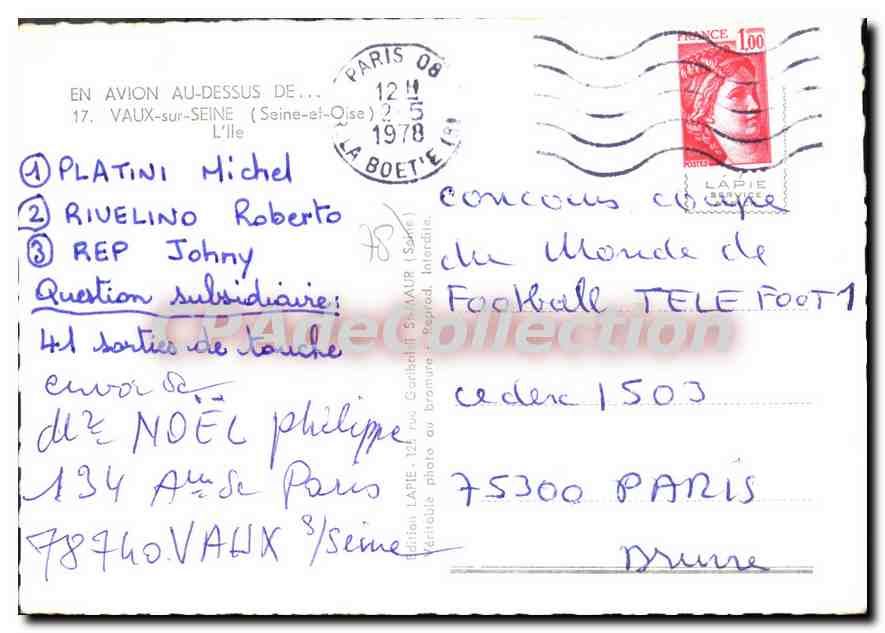 EN AVION AU-DESSUS DE...
17. VAUX-sur-SEINE (Seine-et-Oise)
L'Ile
PARIS 08
12 H
2-5
1978
LA BOETIE (8)
FRANCE 1,00
POSTES
LAPIE
SERVICE
① PLATINI Michel
② RIVELINO Roberto
③ REP Johny
Question subsidiaire:
41 sorties de touche
envoi de
Mr NOËL philippe
134 Ave de Paris
78740 VAUX s/Seine
78
Edition LAPIE - 125 rue Garibaldi St-MAUR (Seine)
Véritable photo au bromure - Reprod. Interdite.
concours coupe
du Monde de
Football TELE FOOT 1
cedex 1503
75300 PARIS
Brune
CPAdeCollection